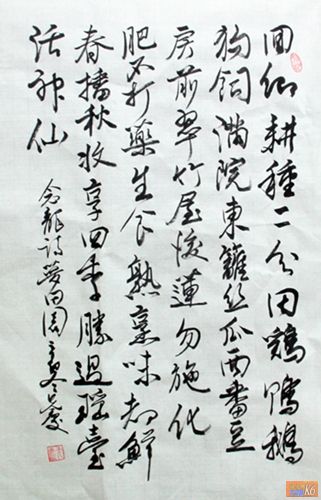 田仙耕種二分田鷄鴨鵝
狗飼滿院東籬絲瓜西番豆
房前翠竹屋後蓮勿施化
肥不打藥生食熟烹味都鮮
春播秋收享四季勝過瑤臺
活神仙
念龍詩夢田園